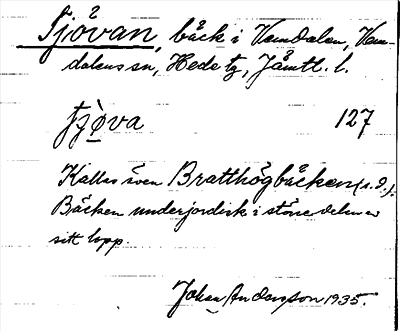 Tjövan, bäck i Vemdalen, Vem-
dalens sn, Hede tg, Jämtl. l.
tjø̀va 127
Kallas även Bratthögbäcken (s. d.).
Bäcken underjordisk i större delen av
sitt lopp.
Johan Andersson 1935.